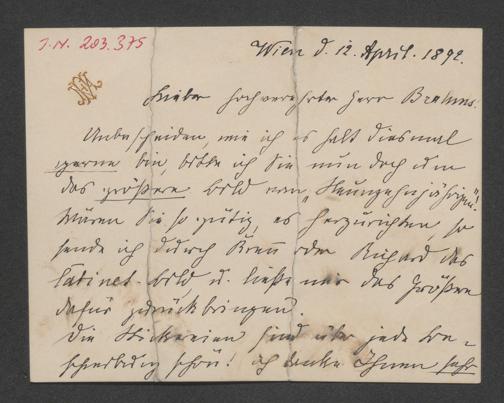 I.N. 203.375
Wien d. 12. April. 1892.
Lieber hochverehrter Herr Brahms.
Unbescheiden, wie ich es halt diesmal
gerne bin, bitte ich Sie nun doch um
das größere Bild vom „Neunzehnjährigen"!
Wären Sie so gütig, es herzurichten, so
sende ich durch oder Richard das
Cabinet-Bild u. ließe mir das Größere
dafür zurückbringen.
Die Stickereien sind über jede Be-
schreibung schön! ich danke Ihnen sehr